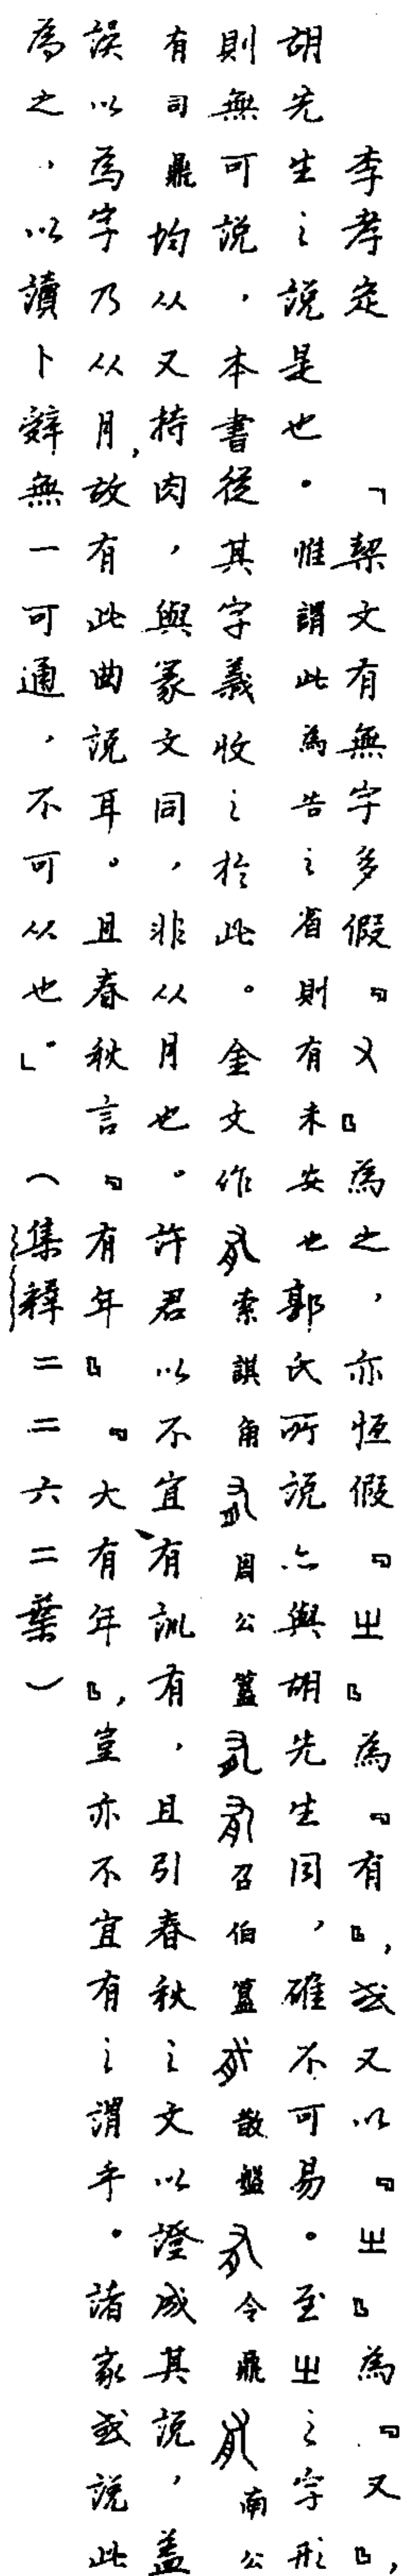 李孝定　「契文有無字多假『又』為之，亦恆假『㞢』為『有』，或又以『㞢』為『又』，
胡先生之説是也。惟謂此為告之省則有未安也郭氏所説亦與胡先生同，確不可易。至㞢之字形
則無可説，本書從其字義收之於此。金文作 索諆角 周公簋 召伯簋 散盤 令鼎 南公
有司鼎均从又持肉，與篆文同，非从月也。許君以不宜有訓有，且引春秋之文以證成其説，蓋
誤以為字乃从月，故有此曲説耳。且春秋言『有年』『大有年』，豈亦不宜有之謂乎。諸家或説此
為之，以讀卜辭無一可通，不可从也。」（集釋二二六二葉）